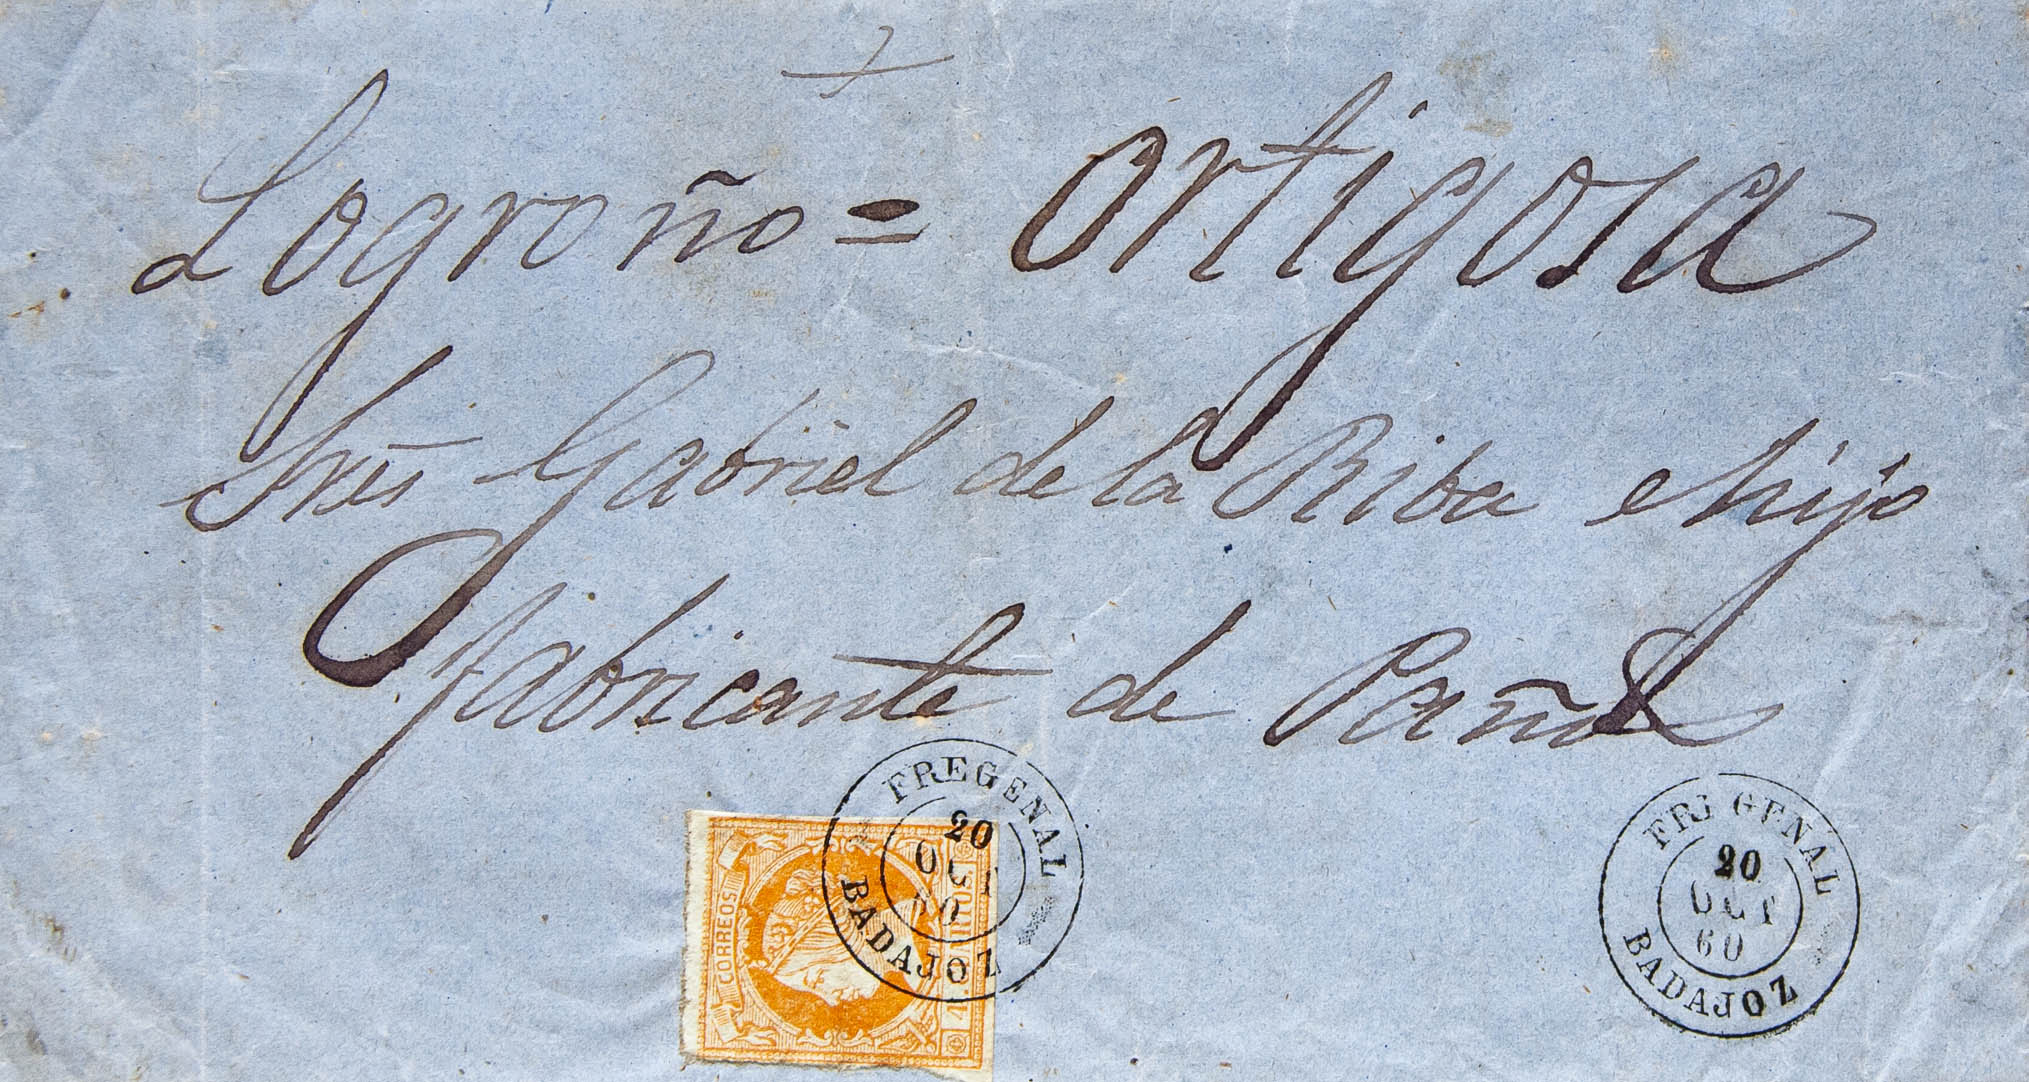 Logroño = Ortigosa
Sres Gabriel de la Riba e hijo
fabricante de Paños
FREGENAL
20
OCT
60
BADAJOZ
CORREOS
4 CUARTOS
FREGENAL
20
OCT
60
BADAJOZ